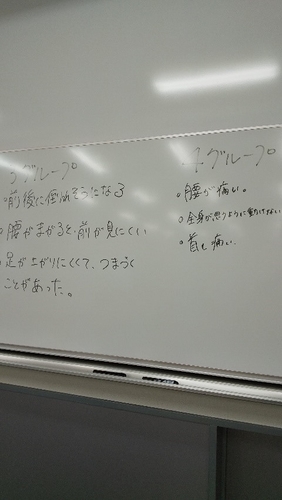 3グループ
・前後に倒れそうになる
○腰がまがると・前が見にくい
○足が上がりにくくて、つまづく
ことがあった。
4グループ
○腰が痛い。
○全身が思うように動けない
○首も痛い。